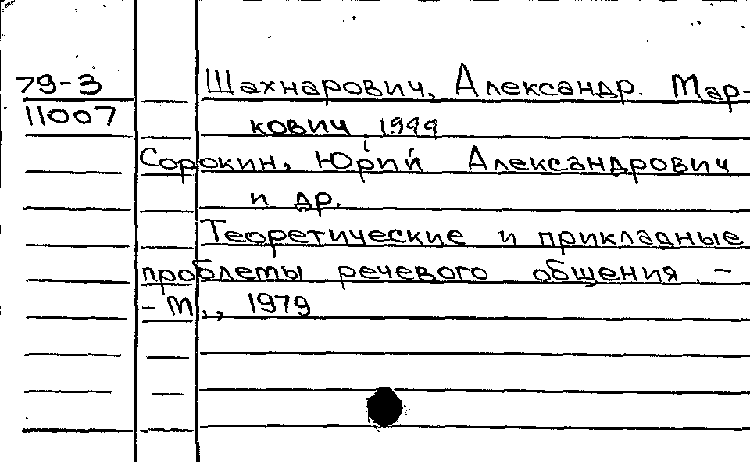 79-3 Шахнарович, Александр. Мар-
11007 кович, 1944
Сорокин, Юрий Александрович
и др.
Теоретические и прикладные
проблемы речевого общения. -
- М., 1979